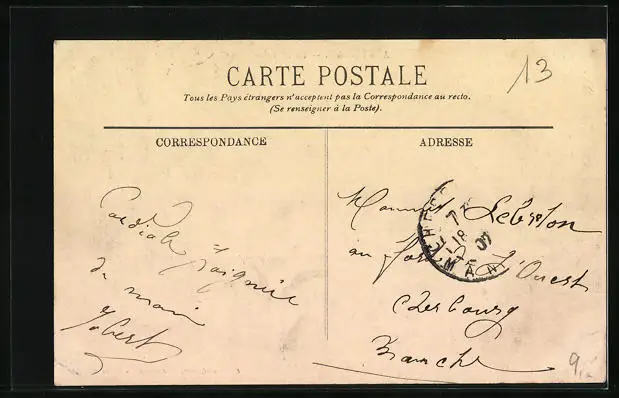 13
CARTE POSTALE
Tous les Pays étrangers n'acceptent pas la Correspondance au recto.
(Se renseigner à la Poste).
CORRESPONDANCE
ADRESSE
Cordiale Poignée
de main
Lebreton
au fort de L'Ouest
Cherbourg
Manche
18
07
9